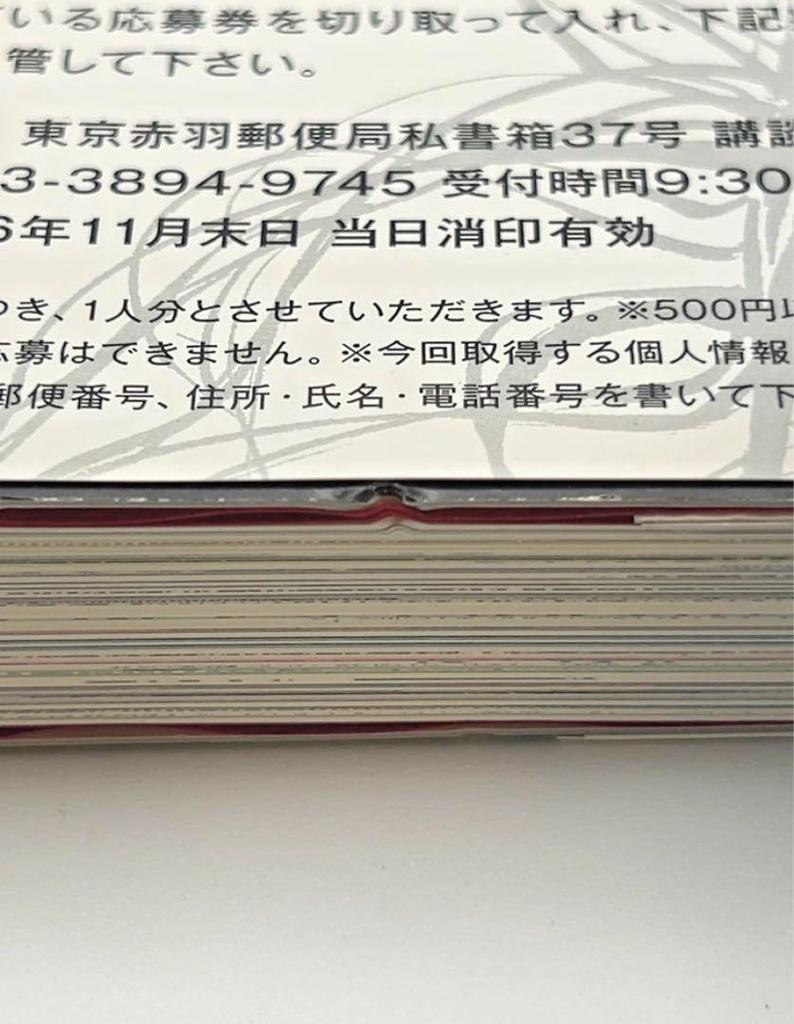 いる応募券を切り取って入れ、下記
管して下さい。
東京赤羽郵便局私書箱37号 講談
3-3894-9745 受付時間9:30
6年11月末日 当日消印有効
つき、1人分とさせていただきます。※500円以
応募はできません。※今回取得する個人情報
郵便番号、住所・氏名・電話番号を書いて下